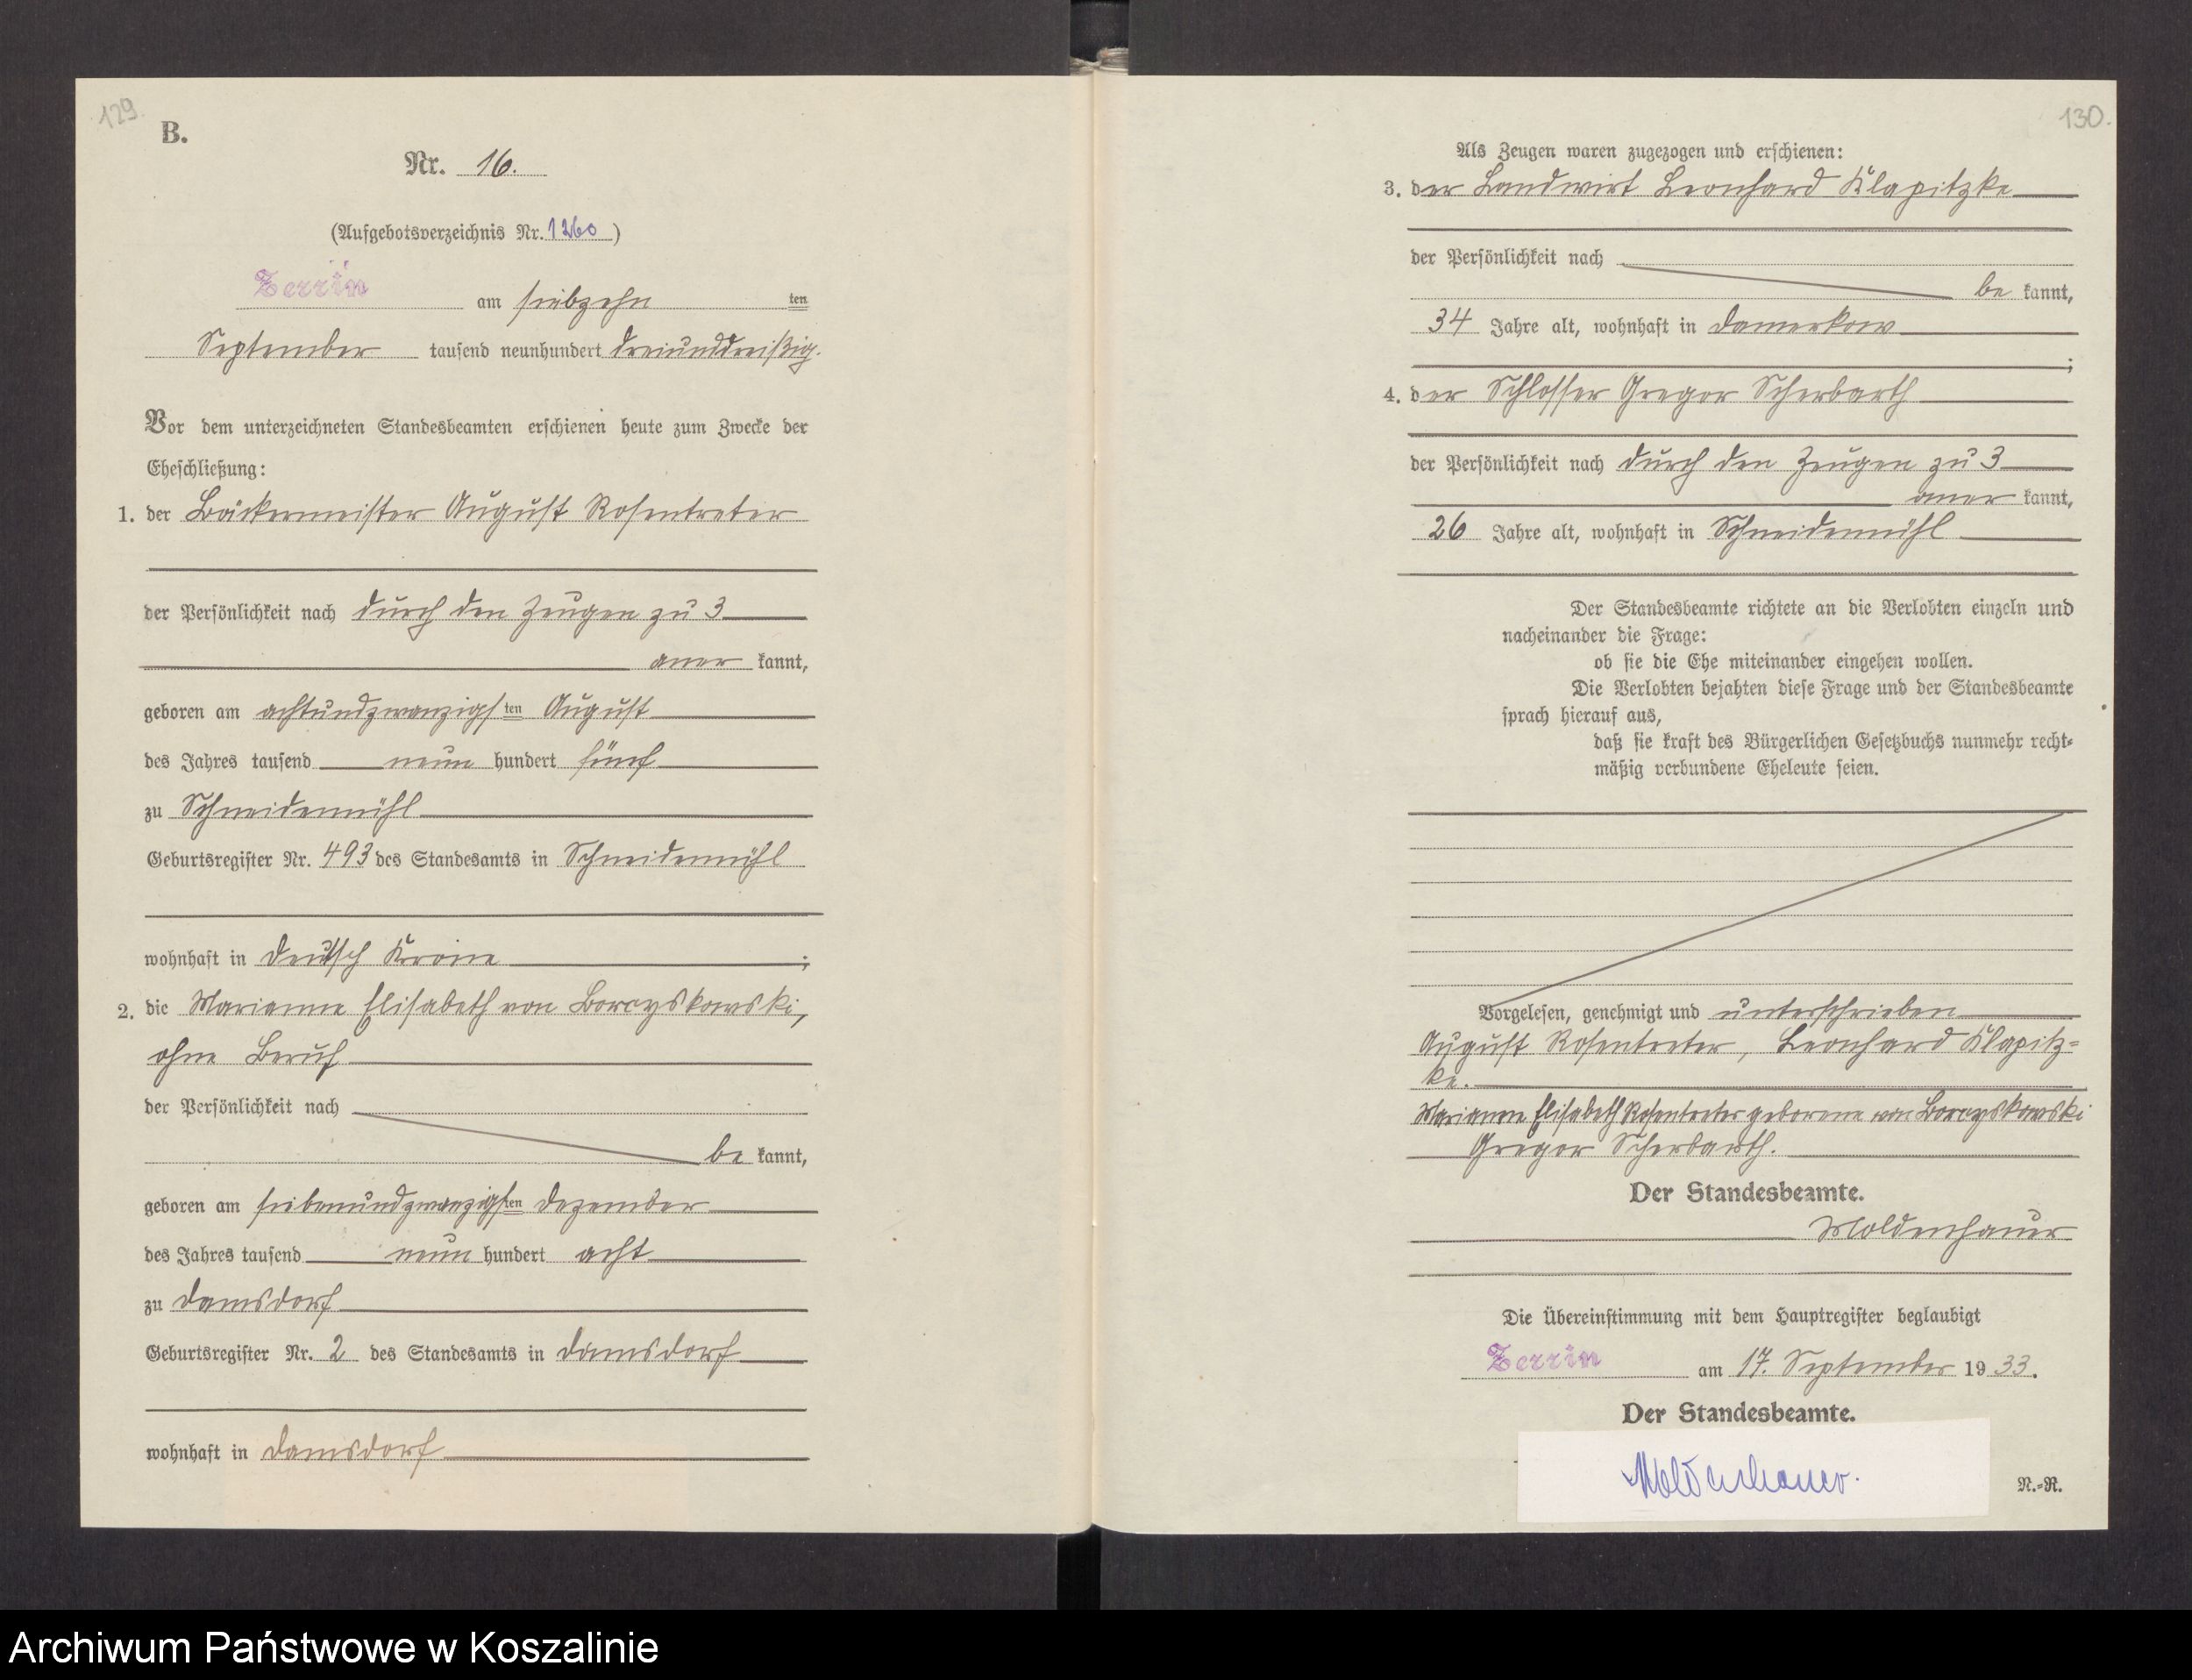 129.
B.
Nr. 16.
(Aufgebotsverzeichnis Nr. 1260)
Zerrin am siebzehn ten
September tausend neunhundert dreiunddreißig.
Vor dem unterzeichneten Standesbeamten erschienen heute zum Zwecke der
Eheschließung:
1. der Bäckermeister August Rosentreter
der Persönlichkeit nach durch den Zeugen zu 3
aner kannt,
geboren am achtundzwanzigsten August
des Jahres tausend neun hundert fünf
zu Schneidemühl
Geburtsregister Nr. 493 des Standesamts in Schneidemühl
wohnhaft in Deutsch Krone ;
2. die Marianne Elisabeth von Borczyskowski,
ohne Beruf
der Persönlichkeit nach
be kannt,
geboren am siebenundzwanzigsten Dezember
des Jahres tausend neun hundert acht
zu Damsdorf
Geburtsregister Nr. 2 des Standesamts in Damsdorf
wohnhaft in Damsdorf
130.
Als Zeugen waren zugezogen und erschienen:
3. der Landwirt Leonhard Klapitzke
der Persönlichkeit nach
be kannt,
34 Jahre alt, wohnhaft in Damerkow
;
4. der Schlosser Gregor Scherbarth
der Persönlichkeit nach durch den Zeugen zu 3
aner kannt,
26 Jahre alt, wohnhaft in Schneidemühl
Der Standesbeamte richtete an die Verlobten einzeln und
nacheinander die Frage:
ob sie die Ehe miteinander eingehen wollen.
Die Verlobten bejahten diese Frage und der Standesbeamte
sprach hierauf aus,
daß sie kraft des Bürgerlichen Gesetzbuchs nunmehr recht-
mäßig verbundene Eheleute seien.
Vorgelesen, genehmigt und unterschrieben
August Rosentreter, Leonhard Klapitz=
ke.
Marianne Elisabeth Rosentreter geborene von Borczyskowski
Gregor Scherbarth.
Der Standesbeamte.
Moldenhauer
Die Übereinstimmung mit dem Hauptregister beglaubigt
Zerrin am 17. September 1933.
Der Standesbeamte.
Moldenhauer.
N.-R.
Archiwum Państwowe w Koszalinie